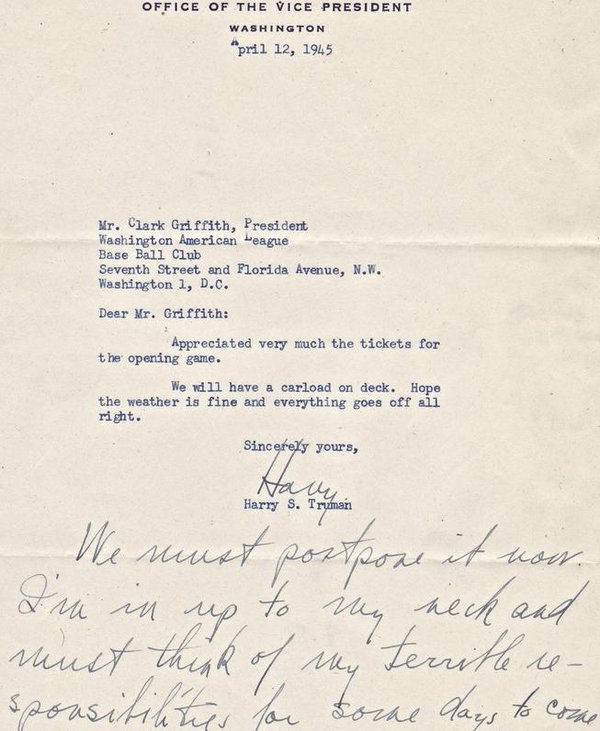 OFFICE OF THE VICE PRESIDENT
WASHINGTON
April 12, 1945
Mr. Clark Griffith, President
Washington American League
Base Ball Club
Seventh Street and Florida Avenue, N.W.
Washington 1, D.C.
Dear Mr. Griffith:
Appreciated very much the tickets for
the opening game.
We will have a carload on deck. Hope
the weather is fine and everything goes off all
right.
Sincerely yours,
Harry
Harry S. Truman
We must postpone it now.
I'm in up to my neck and
must think of my terrible re-
sponsibilities for some days to come